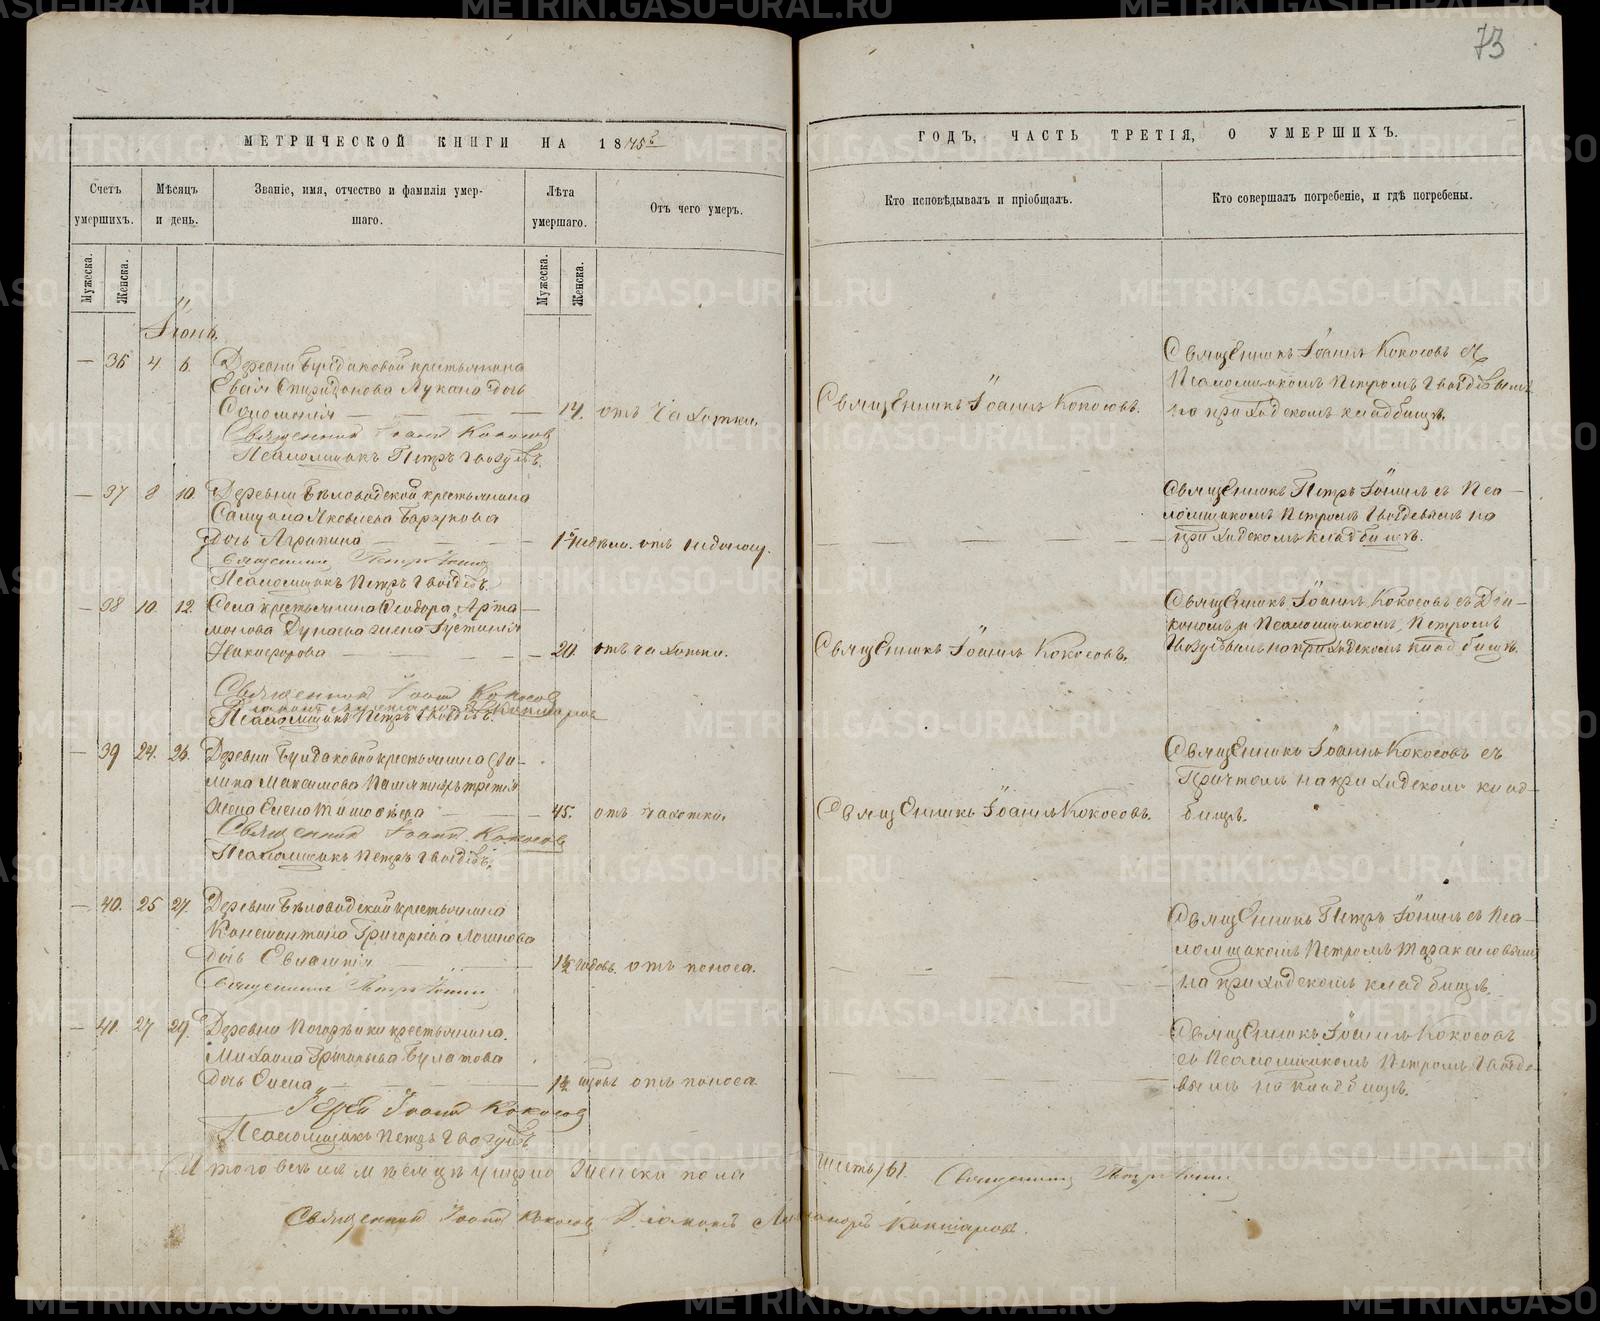 73
МЕТРИЧЕСКОЙ КНИГИ НА 1875й
ГОДЪ, ЧАСТЬ ТРЕТІЯ, О УМЕРШИХЪ.
Счетъ умершихъ.
Мѣсяцъ и день.
Званіе, имя, отчество и фамилія умер-
шаго.
Лѣта умершаго.
Отъ чего умеръ.
Кто исповѣдывалъ и пріобщалъ.
Кто совершалъ погребеніе, и гдѣ погребены.
Мужеска.
Женска.
Мужеска.
Женска.
Іюнь.
— 36 4 6. Деревни Бундаковой крестьянина
Спиридонова Лукана дочь
Соломонія — 14. отъ чахотки.
Священникъ Іоаннъ Кокосовъ.
Священникъ Іоаннъ Кокосовъ съ
Псаломщикомъ Петромъ Гвоздевымъ
на приходскомъ кладбищѣ.
Священникъ Іоаннъ Кокосовъ
Псаломщикъ Петръ Гвоздевъ.
— 37 8 10. Деревни Бѣловодской крестьянина
Самуила Яковлева
дочь Агрипина — недѣл. отъ
Священникъ Петръ съ Пса-
ломщикомъ Петромъ Гвоздевымъ на
приходскомъ кладбищѣ.
Священникъ Петръ
Псаломщикъ Петръ Гвоздевъ.
— 38 10. 12. Села крестьянина Ѳеодора Арта-
монова Дунаева жена Іустинія
Никифорова — 20. отъ чахотки.
Священникъ Іоаннъ Кокосовъ.
Священникъ Іоаннъ Кокосовъ съ Діа-
кономъ и Псаломщикомъ Петромъ
Гвоздевымъ на приходскомъ кладбищѣ.
Священникъ Іоаннъ Кокосовъ
Псаломщикъ Петръ Гвоздевъ.
— 39 24. 26. Деревни Бундаковой крестьянина
Максимова
жена Елена — 45. отъ чахотки.
Священникъ Іоаннъ Кокосовъ.
Священникъ Іоаннъ Кокосовъ съ
Причтомъ на приходскомъ клад-
бищѣ.
Священникъ Іоаннъ Кокосовъ
Псаломщикъ Петръ Гвоздевъ.
— 40. 25 27. Деревни Бѣловодской крестьянина
Константина Григорьева
дочь Евлампія — 1½ годовъ. отъ поноса.
Священникъ Петръ съ Пса-
ломщикомъ Петромъ Таракановымъ
на приходскомъ кладбищѣ.
Священникъ Петръ
— 41. 27 29. Деревни крестьянина
Михаила Григорьева Булатова
дочь Елена — 1½ отъ поноса
Священникъ Іоаннъ Кокосовъ
съ Псаломщикомъ Петромъ Гвозде-
вымъ на кладбищѣ.
Іерей Іоаннъ Кокосовъ
Псаломщикъ Петръ Гвоздевъ
Итого въ семъ мѣсяцѣ умерло женска пола шесть /6/. Священникъ Петръ
Священникъ Іоаннъ Кокосовъ Діаконъ Александръ Кокшаровъ.
METRIKI.GASO-URAL.RU